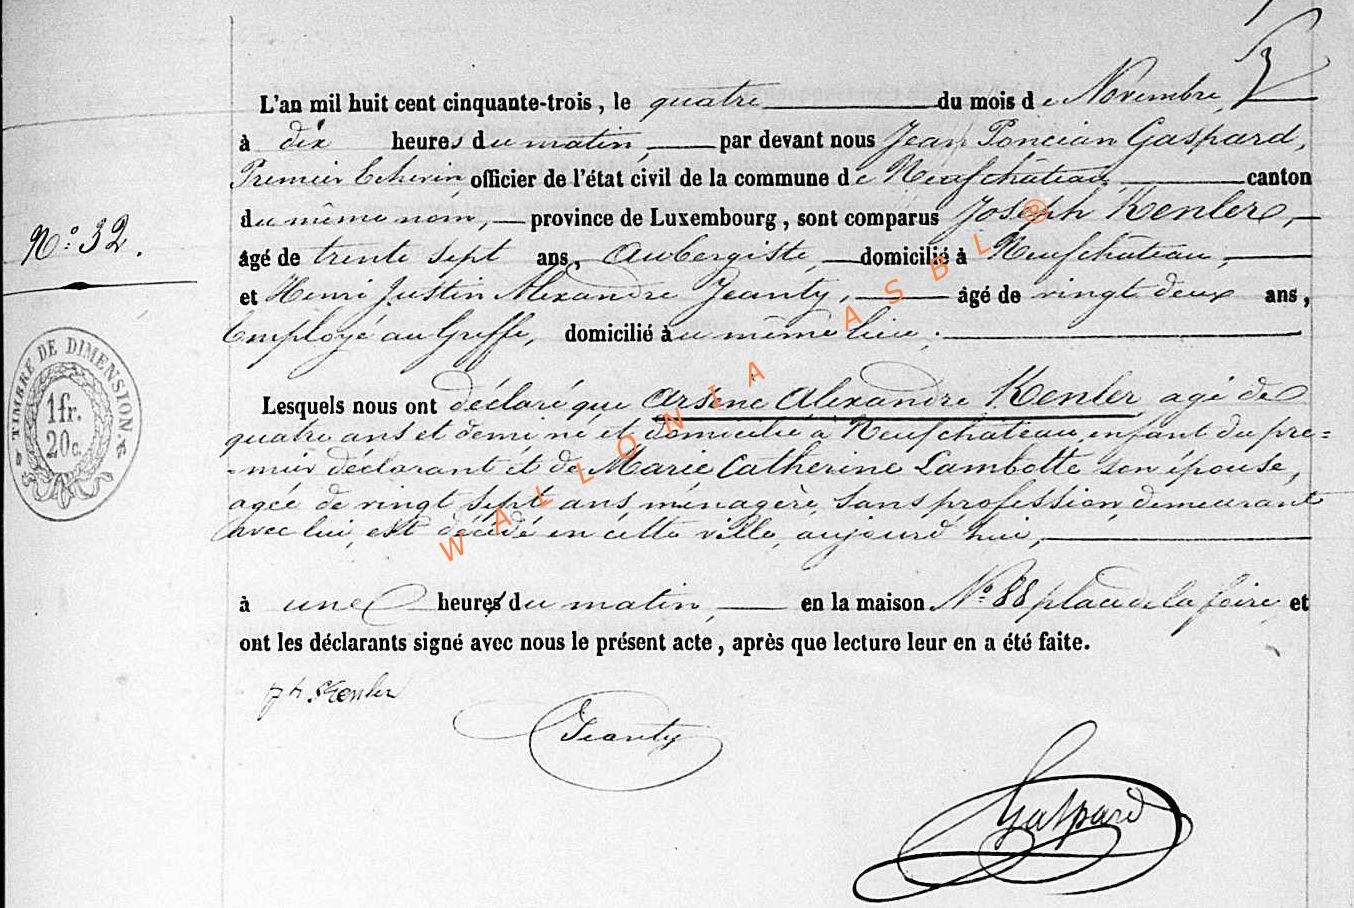 L'an mil huit cent cinquante-trois, le quatre du mois de Novembre,
à dix heures du matin, par devant nous Jean Poncian Gaspard,
Premier Echevin, officier de l'état civil de la commune de Neufchâteau, canton
du même nom, province de Luxembourg, sont comparus Joseph Kenler,
âgé de trente sept ans, Aubergiste, domicilié à Neufchâteau,
N.° 32.
et Henri Justin Alexandre Jeanty, âgé de vingt deux ans,
Employé au Greffe, domicilié au même lieu;
TIMBRE DE DIMENSION
1 fr.
20 c.
Lesquels nous ont déclaré que Arsène Alexandre Kenler agé de
quatre ans et demi né et domicilié à Neufchateau, enfant du pre=
=mier déclarant et de Marie Catherine Lambotte son épouse,
agée de vingt sept ans ménagère, sans profession, demeurant
avec lui, est décédé en cette ville, aujourd'hui,
à une heures du matin, en la maison N.° 88 place de la foire et
ont les déclarants signé avec nous le présent acte, après que lecture leur en a été faite.
Kenler
Jeanty
Gaspard
WALLONIA ASBL ®